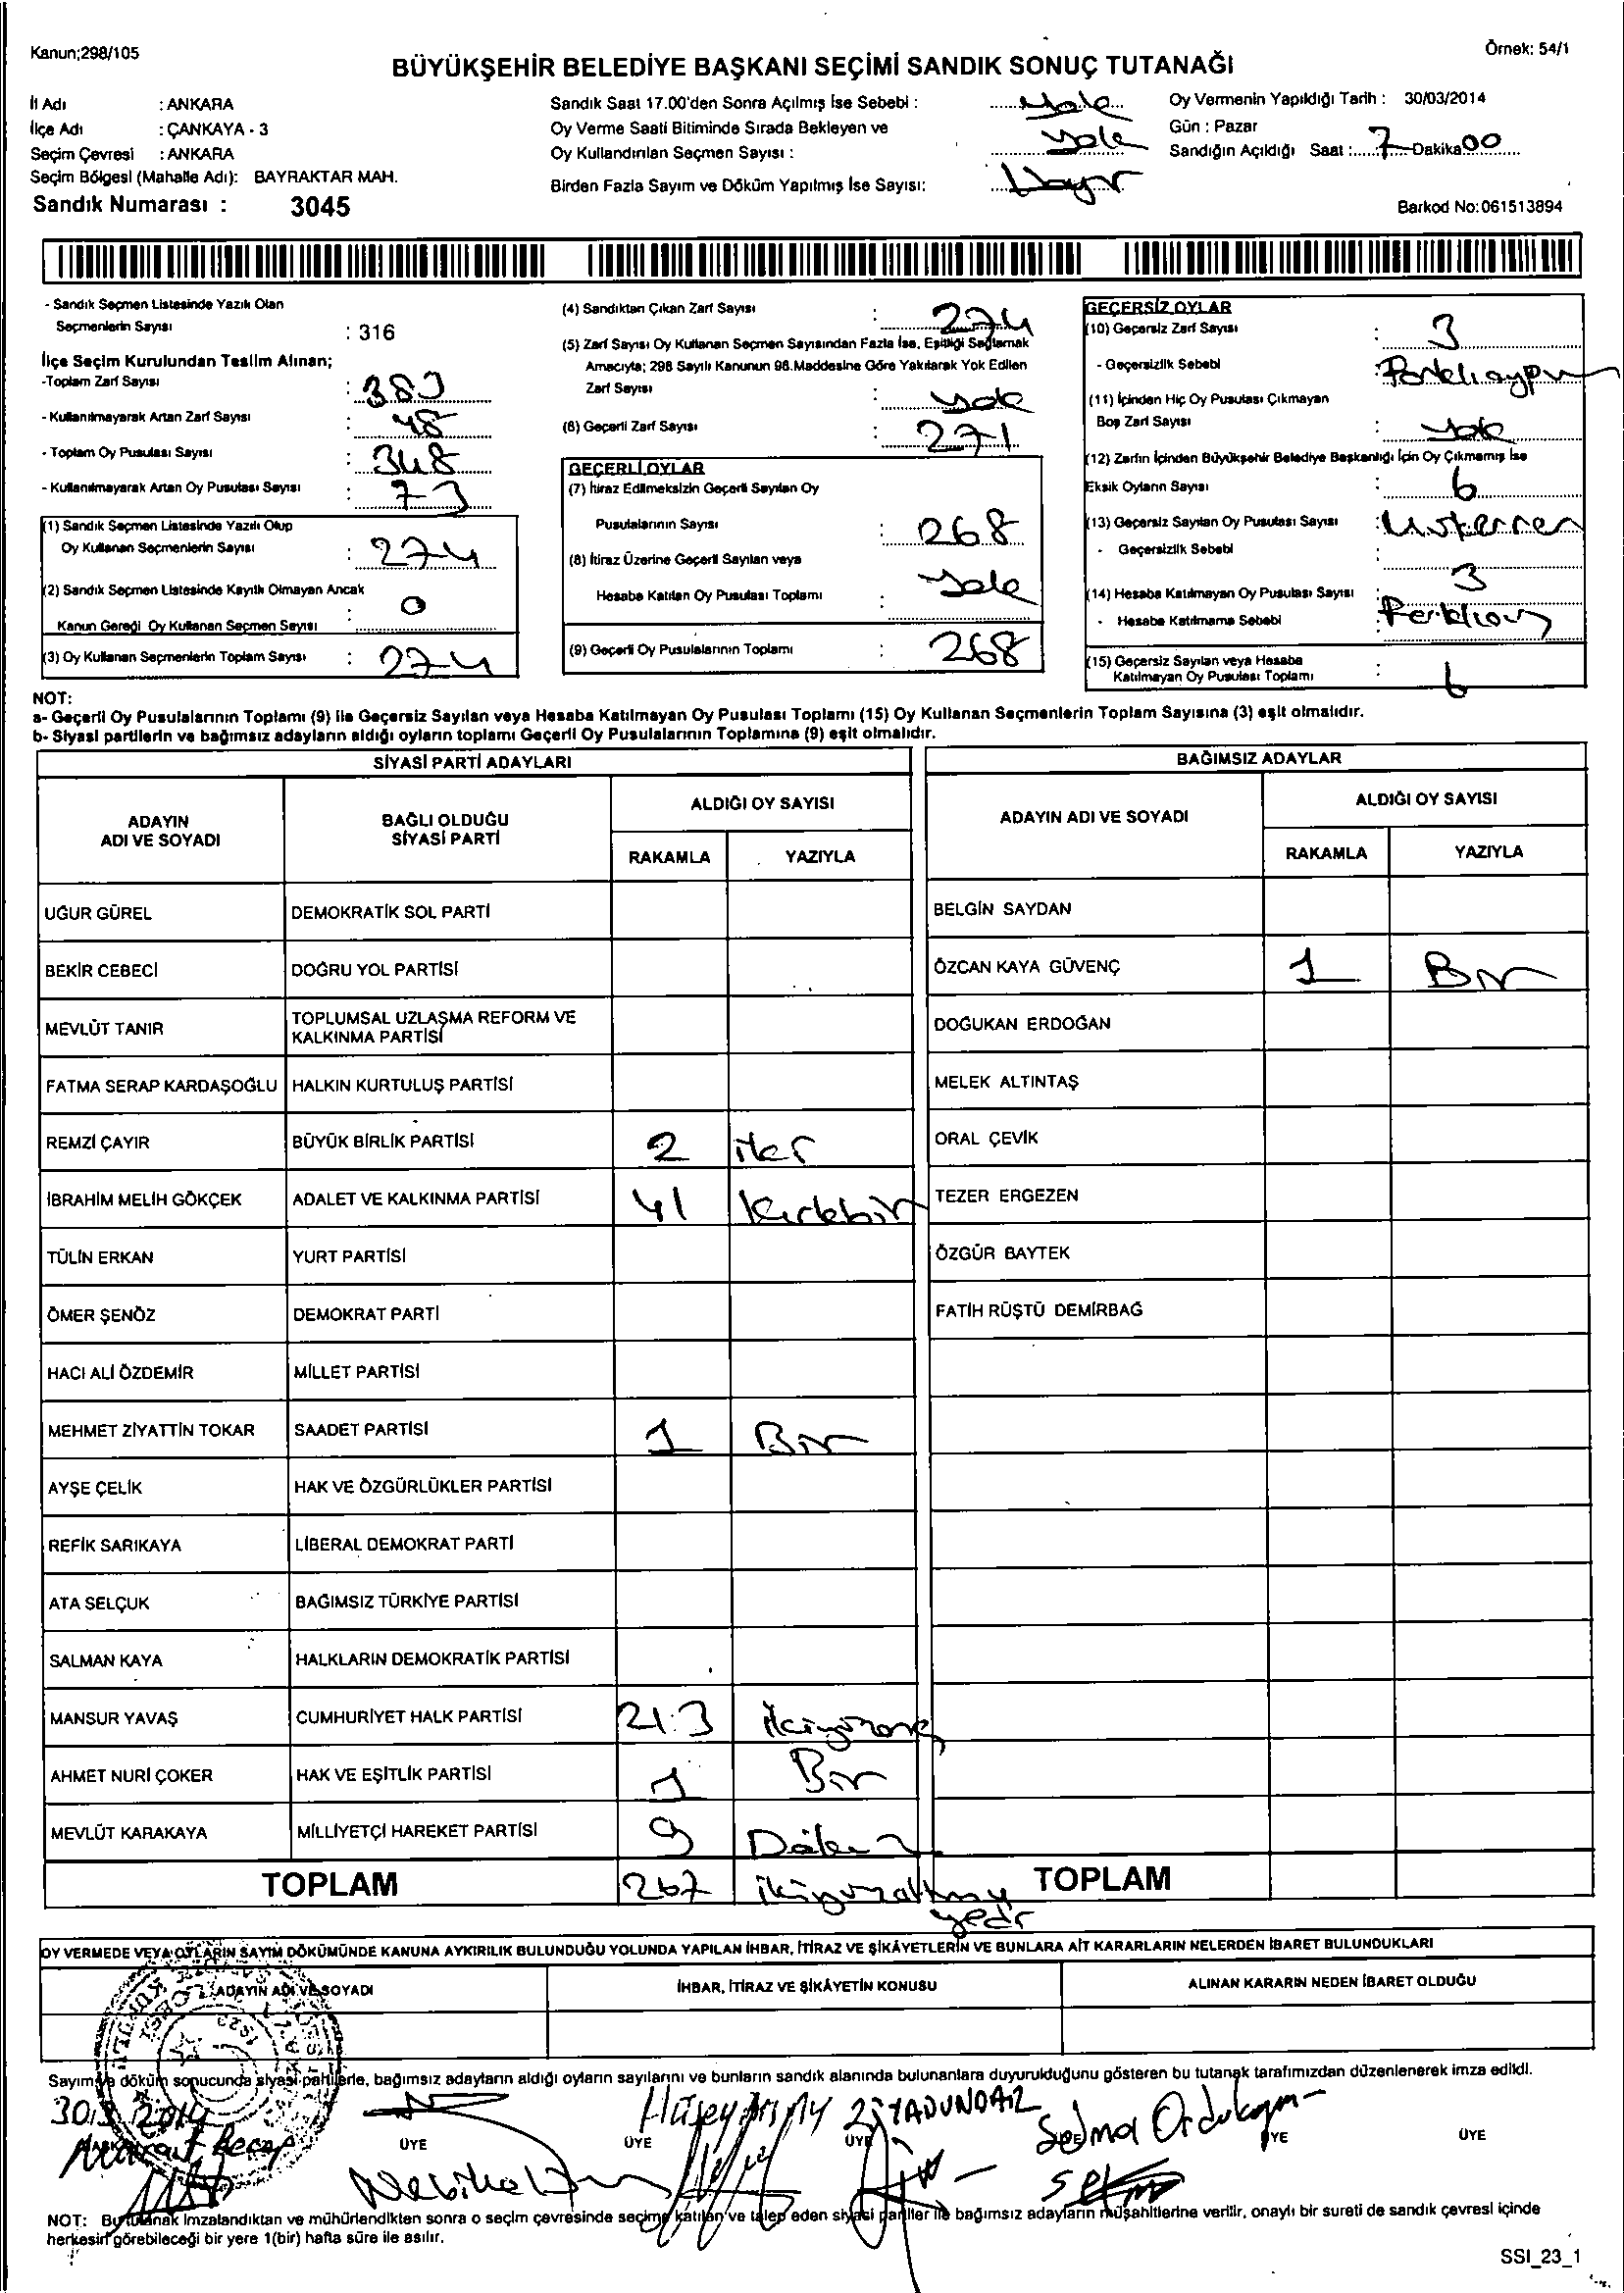 Kanun;298/105
Örnek: 54/1
BÜYÜKŞEHİR BELEDİYE BAŞKANI SEÇİMİ SANDIK SONUÇ TUTANAĞI
İl Adı : ANKARA
İlçe Adı : ÇANKAYA - 3
Seçim Çevresi : ANKARA
Seçim Bölgesi (Mahalle Adı): BAYRAKTAR MAH.
Sandık Numarası : 3045
Sandık Saat 17.00'den Sonra Açılmış İse Sebebi : Yok
Oy Verme Saati Bitiminde Sırada Bekleyen ve
Oy Kullandırılan Seçmen Sayısı : Yok
Birden Fazla Sayım ve Döküm Yapılmış İse Sayısı: Hayır
Oy Vermenin Yapıldığı Tarih : 30/03/2014
Gün : Pazar
Sandığın Açıldığı Saat : 7 Dakika 00
Barkod No:061513894
- Sandık Seçmen Listesinde Yazılı Olan
Seçmenlerin Sayısı : 316
İlçe Seçim Kurulundan Teslim Alınan;
-Toplam Zarf Sayısı :
- Kullanılmayarak Artan Zarf Sayısı : 48
- Toplam Oy Pusulası Sayısı : 348
- Kullanılmayarak Artan Oy Pusulası Sayısı : 73
(1) Sandık Seçmen Listesinde Yazılı Olup
Oy Kullanan Seçmenlerin Sayısı : 274
(2) Sandık Seçmen Listesinde Kayıtlı Olmayan Ancak
Kanun Gereği Oy Kullanan Seçmen Sayısı : 0
(3) Oy Kullanan Seçmenlerin Toplam Sayısı : 274
(4) Sandıktan Çıkan Zarf Sayısı : 274
(5) Zarf Sayısı Oy Kullanan Seçmen Sayısından Fazla İse, Eşitliği Sağlamak
Amacıyla; 298 Sayılı Kanunun 98.Maddesine Göre Yakılarak Yok Edilen
Zarf Sayısı : Yok
(6) Geçerli Zarf Sayısı : 271
GEÇERLİ OYLAR
(7) İtiraz Edilmeksizin Geçerli Sayılan Oy
Pusulalarının Sayısı : 268
(8) İtiraz Üzerine Geçerli Sayılan veya
Hesaba Katılan Oy Pusulası Toplamı : Yok
(9) Geçerli Oy Pusulalarının Toplamı : 268
GEÇERSİZ OYLAR
(10) Geçersiz Zarf Sayısı : 3
- Geçersizlik Sebebi :
(11) İçinden Hiç Oy Pusulası Çıkmayan
Boş Zarf Sayısı : Yok
(12) Zarfın İçinden Büyükşehir Belediye Başkanlığı İçin Oy Çıkmamış İse
Eksik Oyların Sayısı : 6
(13) Geçersiz Sayılan Oy Pusulası Sayısı :
- Geçersizlik Sebebi :
(14) Hesaba Katılmayan Oy Pusulası Sayısı : 3
- Hesaba Katılmama Sebebi :
(15) Geçersiz Sayılan veya Hesaba
Katılmayan Oy Pusulası Toplamı : 6
NOT:
a- Geçerli Oy Pusulalarının Toplamı (9) ile Geçersiz Sayılan veya Hesaba Katılmayan Oy Pusulası Toplamı (15) Oy Kullanan Seçmenlerin Toplam Sayısına (3) eşit olmalıdır.
b- Siyasi partilerin ve bağımsız adayların aldığı oyların toplamı Geçerli Oy Pusulalarının Toplamına (9) eşit olmalıdır.
SİYASİ PARTİ ADAYLARI
ADAYIN ADI VE SOYADI BAĞLI OLDUĞU SİYASİ PARTİ ALDIĞI OY SAYISI
RAKAMLA YAZIYLA
UĞUR GÜREL DEMOKRATİK SOL PARTİ
BEKİR CEBECİ DOĞRU YOL PARTİSİ
MEVLÜT TANIR TOPLUMSAL UZLAŞMA REFORM VE KALKINMA PARTİSİ
FATMA SERAP KARDAŞOĞLU HALKIN KURTULUŞ PARTİSİ
REMZİ ÇAYIR BÜYÜK BİRLİK PARTİSİ 2 iki
İBRAHİM MELİH GÖKÇEK ADALET VE KALKINMA PARTİSİ 41 Kırkbir
TÜLİN ERKAN YURT PARTİSİ
ÖMER ŞENÖZ DEMOKRAT PARTİ
HACI ALİ ÖZDEMİR MİLLET PARTİSİ
MEHMET ZİYATTİN TOKAR SAADET PARTİSİ 1 Bir
AYŞE ÇELİK HAK VE ÖZGÜRLÜKLER PARTİSİ
REFİK SARIKAYA LİBERAL DEMOKRAT PARTİ
ATA SELÇUK BAĞIMSIZ TÜRKİYE PARTİSİ
SALMAN KAYA HALKLARIN DEMOKRATİK PARTİSİ
MANSUR YAVAŞ CUMHURİYET HALK PARTİSİ 213 ikiyüzonüç
AHMET NURİ ÇOKER HAK VE EŞİTLİK PARTİSİ 1 Bir
MEVLÜT KARAKAYA MİLLİYETÇİ HAREKET PARTİSİ 9 Dokuz
TOPLAM 267 ikiyüzaltmış yedi
BAĞIMSIZ ADAYLAR
ADAYIN ADI VE SOYADI ALDIĞI OY SAYISI
RAKAMLA YAZIYLA
BELGİN SAYDAN
ÖZCAN KAYA GÜVENÇ 1 Bir
DOĞUKAN ERDOĞAN
MELEK ALTINTAŞ
ORAL ÇEVİK
TEZER ERGEZEN
ÖZGÜR BAYTEK
FATİH RÜŞTÜ DEMİRBAĞ
TOPLAM
OY VERMEDE VEYA OYLARIN SAYIM DÖKÜMÜNDE KANUNA AYKIRILIK BULUNDUĞU YOLUNDA YAPILAN İHBAR, İTİRAZ VE ŞİKÂYETLERİN VE BUNLARA AİT KARARLARIN NELERDEN İBARET BULUNDUKLARI
ADAYIN ADI VE SOYADI İHBAR, İTİRAZ VE ŞİKÂYETİN KONUSU ALINAN KARARIN NEDEN İBARET OLDUĞU
Sayım ve döküm sonucunda siyasi partilerle, bağımsız adayların aldığı oyların sayılarını ve bunların sandık alanında bulunanlara duyurulduğunu gösteren bu tutanak tarafımızdan düzenlenerek imza edildi.
30.3.2014
ÜYE ÜYE ÜYE ÜYE ÜYE
Selma
NOT: Bu tutanak İmzalandıktan ve mühürlendikten sonra o seçim çevresinde seçime katılan ve talep eden siyasi partiler ile bağımsız adayların müşahitlerine verilir, onaylı bir sureti de sandık çevresi içinde
herkesin görebileceği bir yere 1(bir) hafta süre ile asılır.
SSI_23_1